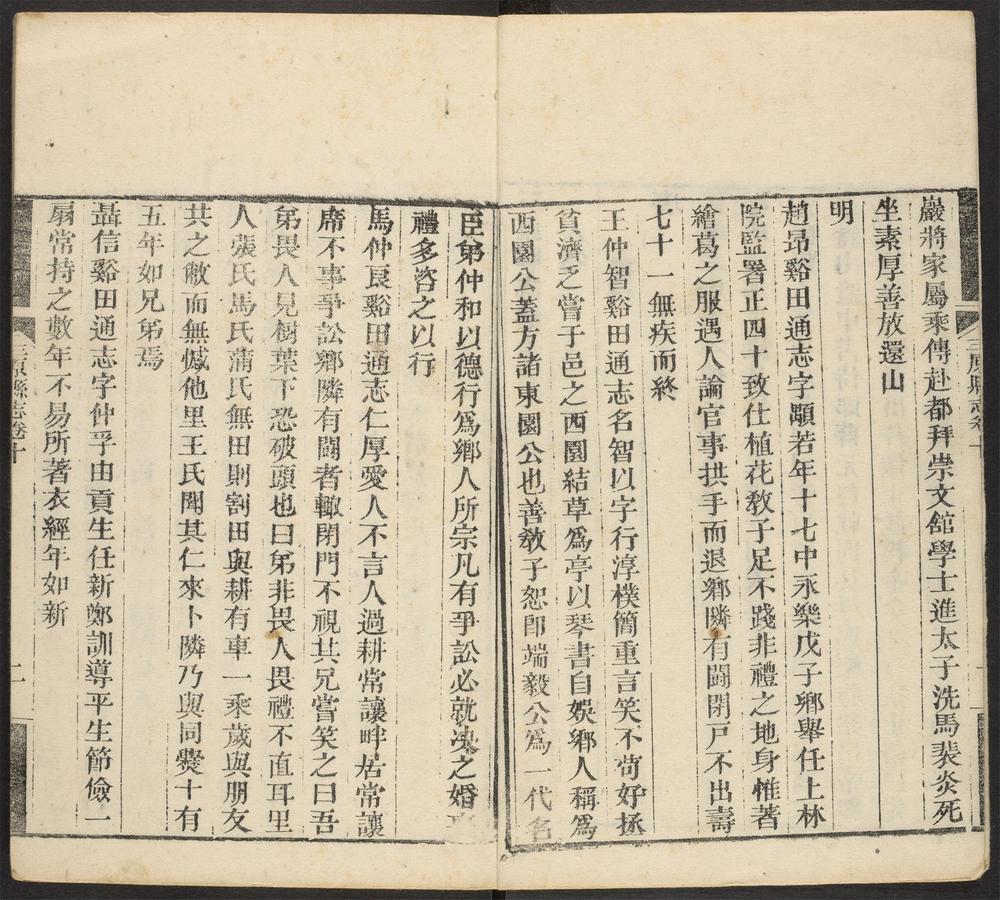 巖將家屬乘傳赴都拜崇文舘學士進太子洗馬裴炎死
坐素厚善放還山
明
趙昂谿田通志字顒若年十七中永樂戊子鄉舉任上林
院監署正四十致仕植花敎子足不踐非禮之地身惟著
繪葛之服遇人論官事拱手而退鄉隣有鬪閉戸不出壽
七十一無疾而終
王仲智谿田通志名智以字行淳樸簡重言笑不苟好拯
貧濟乏嘗于邑之西園結草爲亭以琴書自娛鄉人稱爲
西園公蓋方諸東園公也善敎子恕卽端毅公爲一代名
臣弟仲和以德行爲鄉人所宗凡有爭訟必就決之婚
禮多咨之以行
馬仲良谿田通志仁厚愛人不言人過耕常讓畔居常讓
席不事爭訟鄉隣有鬪者輙閉門不視其兄嘗笑之曰吾
弟畏人見樹葉下恐破頭也曰弟非畏人畏禮不直耳里
人張氏馬氏蒲氏無田則割田與耕有車一乘歲與朋友
共之敝而無憾他里王氏聞其仁來卜隣乃與同爨十有
五年如兄弟焉
聶信谿田通志字仲孚由貢生任新鄭訓導平生節儉一
扇常持之數年不易所著衣經年如新
三原縣志卷十
二